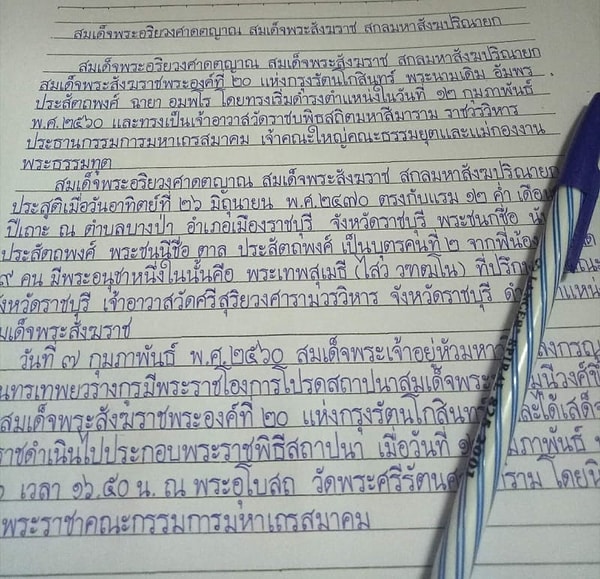 สมเด็จพระอริยวงศาคตญาณ สมเด็จพระสังฆราช สกลมหาสังฆปริณายก
สมเด็จพระอริยวงศาคตญาณ สมเด็จพระสังฆราช สกลมหาสังฆปริณายก
สมเด็จพระสังฆราชพระองค์ที่ ๒๐ แห่งกรุงรัตนโกสินทร์ พระนามเดิม อัมพร
ประสัตถพงศ์ ฉายา อมฺพโร โดยทรงเริ่มดำรงตำแหน่งในวันที่ ๑๒ กุมภาพันธ์
พ.ศ.๒๕๖๐ และทรงเป็นเจ้าอาวาสวัดราชบพิธสถิตมหาสีมาราม ราชวรวิหาร
ประธานกรรมการมหาเถรสมาคม เจ้าคณะใหญ่คณะธรรมยุตและแม่กองงาน
พระธรรมทูต
สมเด็จพระอริยวงศาคตญาณ สมเด็จพระสังฆราช สกลมหาสังฆปริณายก
ประสูติเมื่อวันอาทิตย์ที่ ๒๖ มิถุนายน พ.ศ.๒๔๗๐ ตรงกับแรม ๑๒ ค่ำ
ปีเถาะ ณ ตำบลบางป่า อำเภอเมืองราชบุรี จังหวัดราชบุรี พระชนกชื่อ
ประสัตถพงศ์ พระชนนีชื่อ ตาล ประสัตถพงศ์ เป็นบุตรคนที่ ๒ จากพี่น้อง
๙ คน มีพระอนุชาหนึ่งในนั้นคือ พระเทพสุเมธี (ไสว วฑฺฒโน)
จังหวัดราชบุรี เจ้าอาวาสวัดศรีสุริยวงศารามวรวิหาร จังหวัดราชบุรี
สมเด็จพระสังฆราช
วันที่ ๗ กุมภาพันธ์ พ.ศ.๒๕๖๐ สมเด็จพระเจ้าอยู่หัวมหา
นทรเทพยวรางกูรมีพระราชโองการโปรดสถาปนาสมเด็จพระ
สมเด็จพระสังฆราชพระองค์ที่ ๒๐ แห่งกรุงรัตนโกสินทร์ และได้เสด็จ
ราชดำเนินไปประกอบพระราชพิธีสถาปนา เมื่อวันที่
เวลา ๑๖.๕๐ น. ณ พระอุโบสถ วัดพระศรีรัตน โดย
พระราชาคณะกรรมการมหาเถรสมาคม